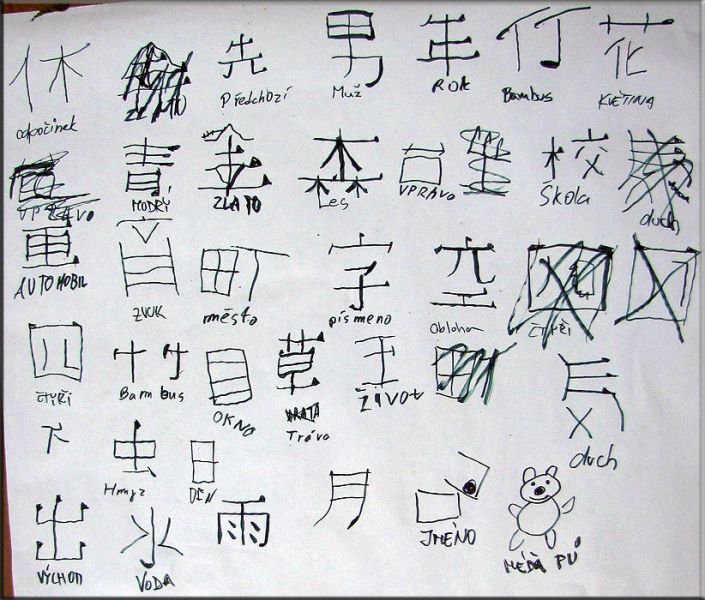 休 先 男 年 花
odpočinek Předchozí Muž ROK Bambus KVĚTINA
青 金 森 校
VPRAVO MODRÝ ZLATO Les VPRAVO Škola duch
車 町 字 空
AUTOMOBIL ZVUK město písmeno Obloha ČTYŘI
四 竹 目 草 王
ČTYŘI Bambus OKNO Tráva ŽIVOT duch
下 虫 日
Hmyz DEN
出 水 雨 月
VÝCHOD VODA JMÉNO MÉĎA PÚ